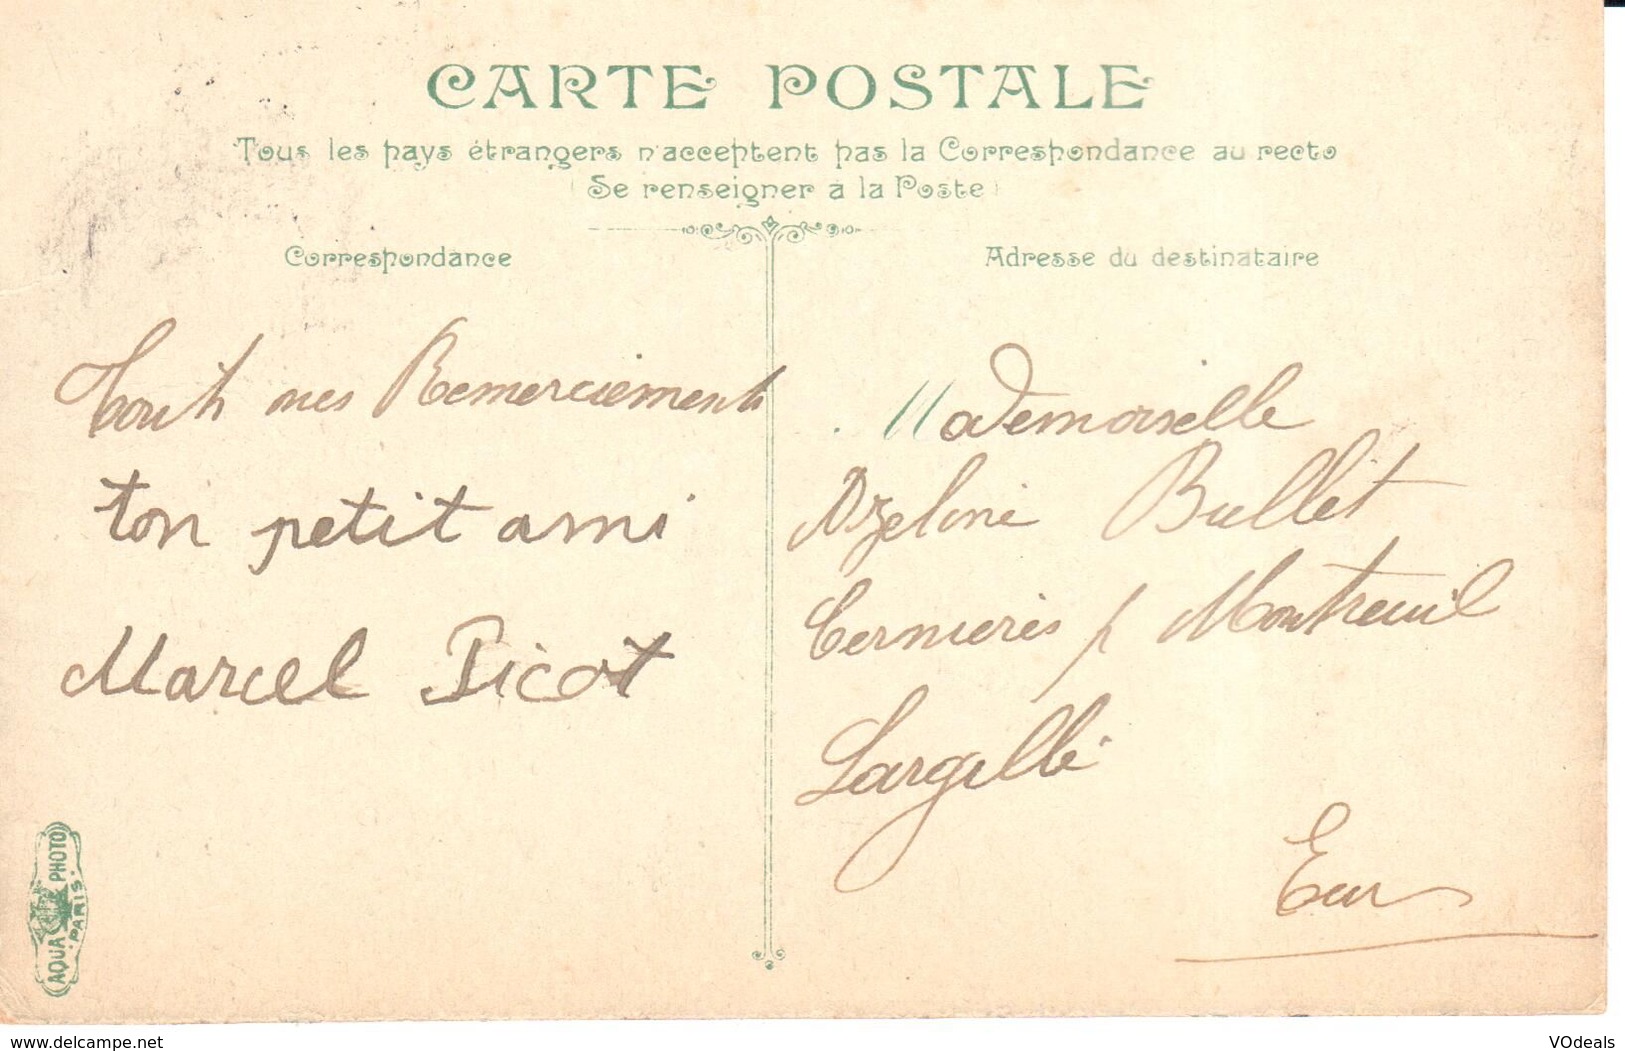 CARTE POSTALE
Tous les pays étrangers n'acceptent pas la Correspondance au recto
(Se renseigner à la Poste)
Correspondance
Adresse du destinataire
mes Remerciements
ton petit ami
Marcel Picot
Mademoiselle
Azeline Bullet
p Montreuil
Largillé
Eure
AQUA PHOTO
PARIS
www.delcampe.net
VOdeals